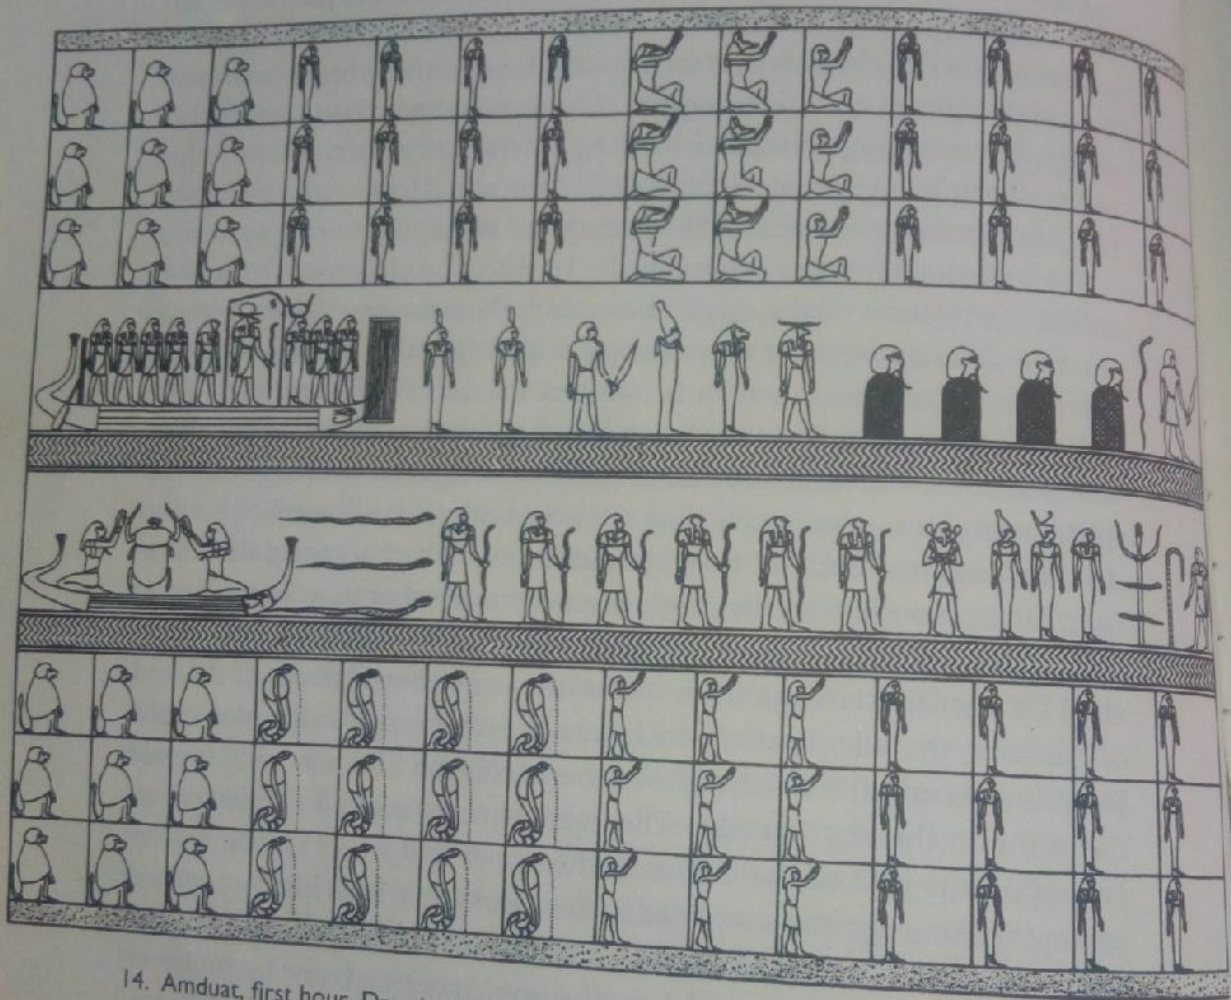 14. Amduat, first hour.